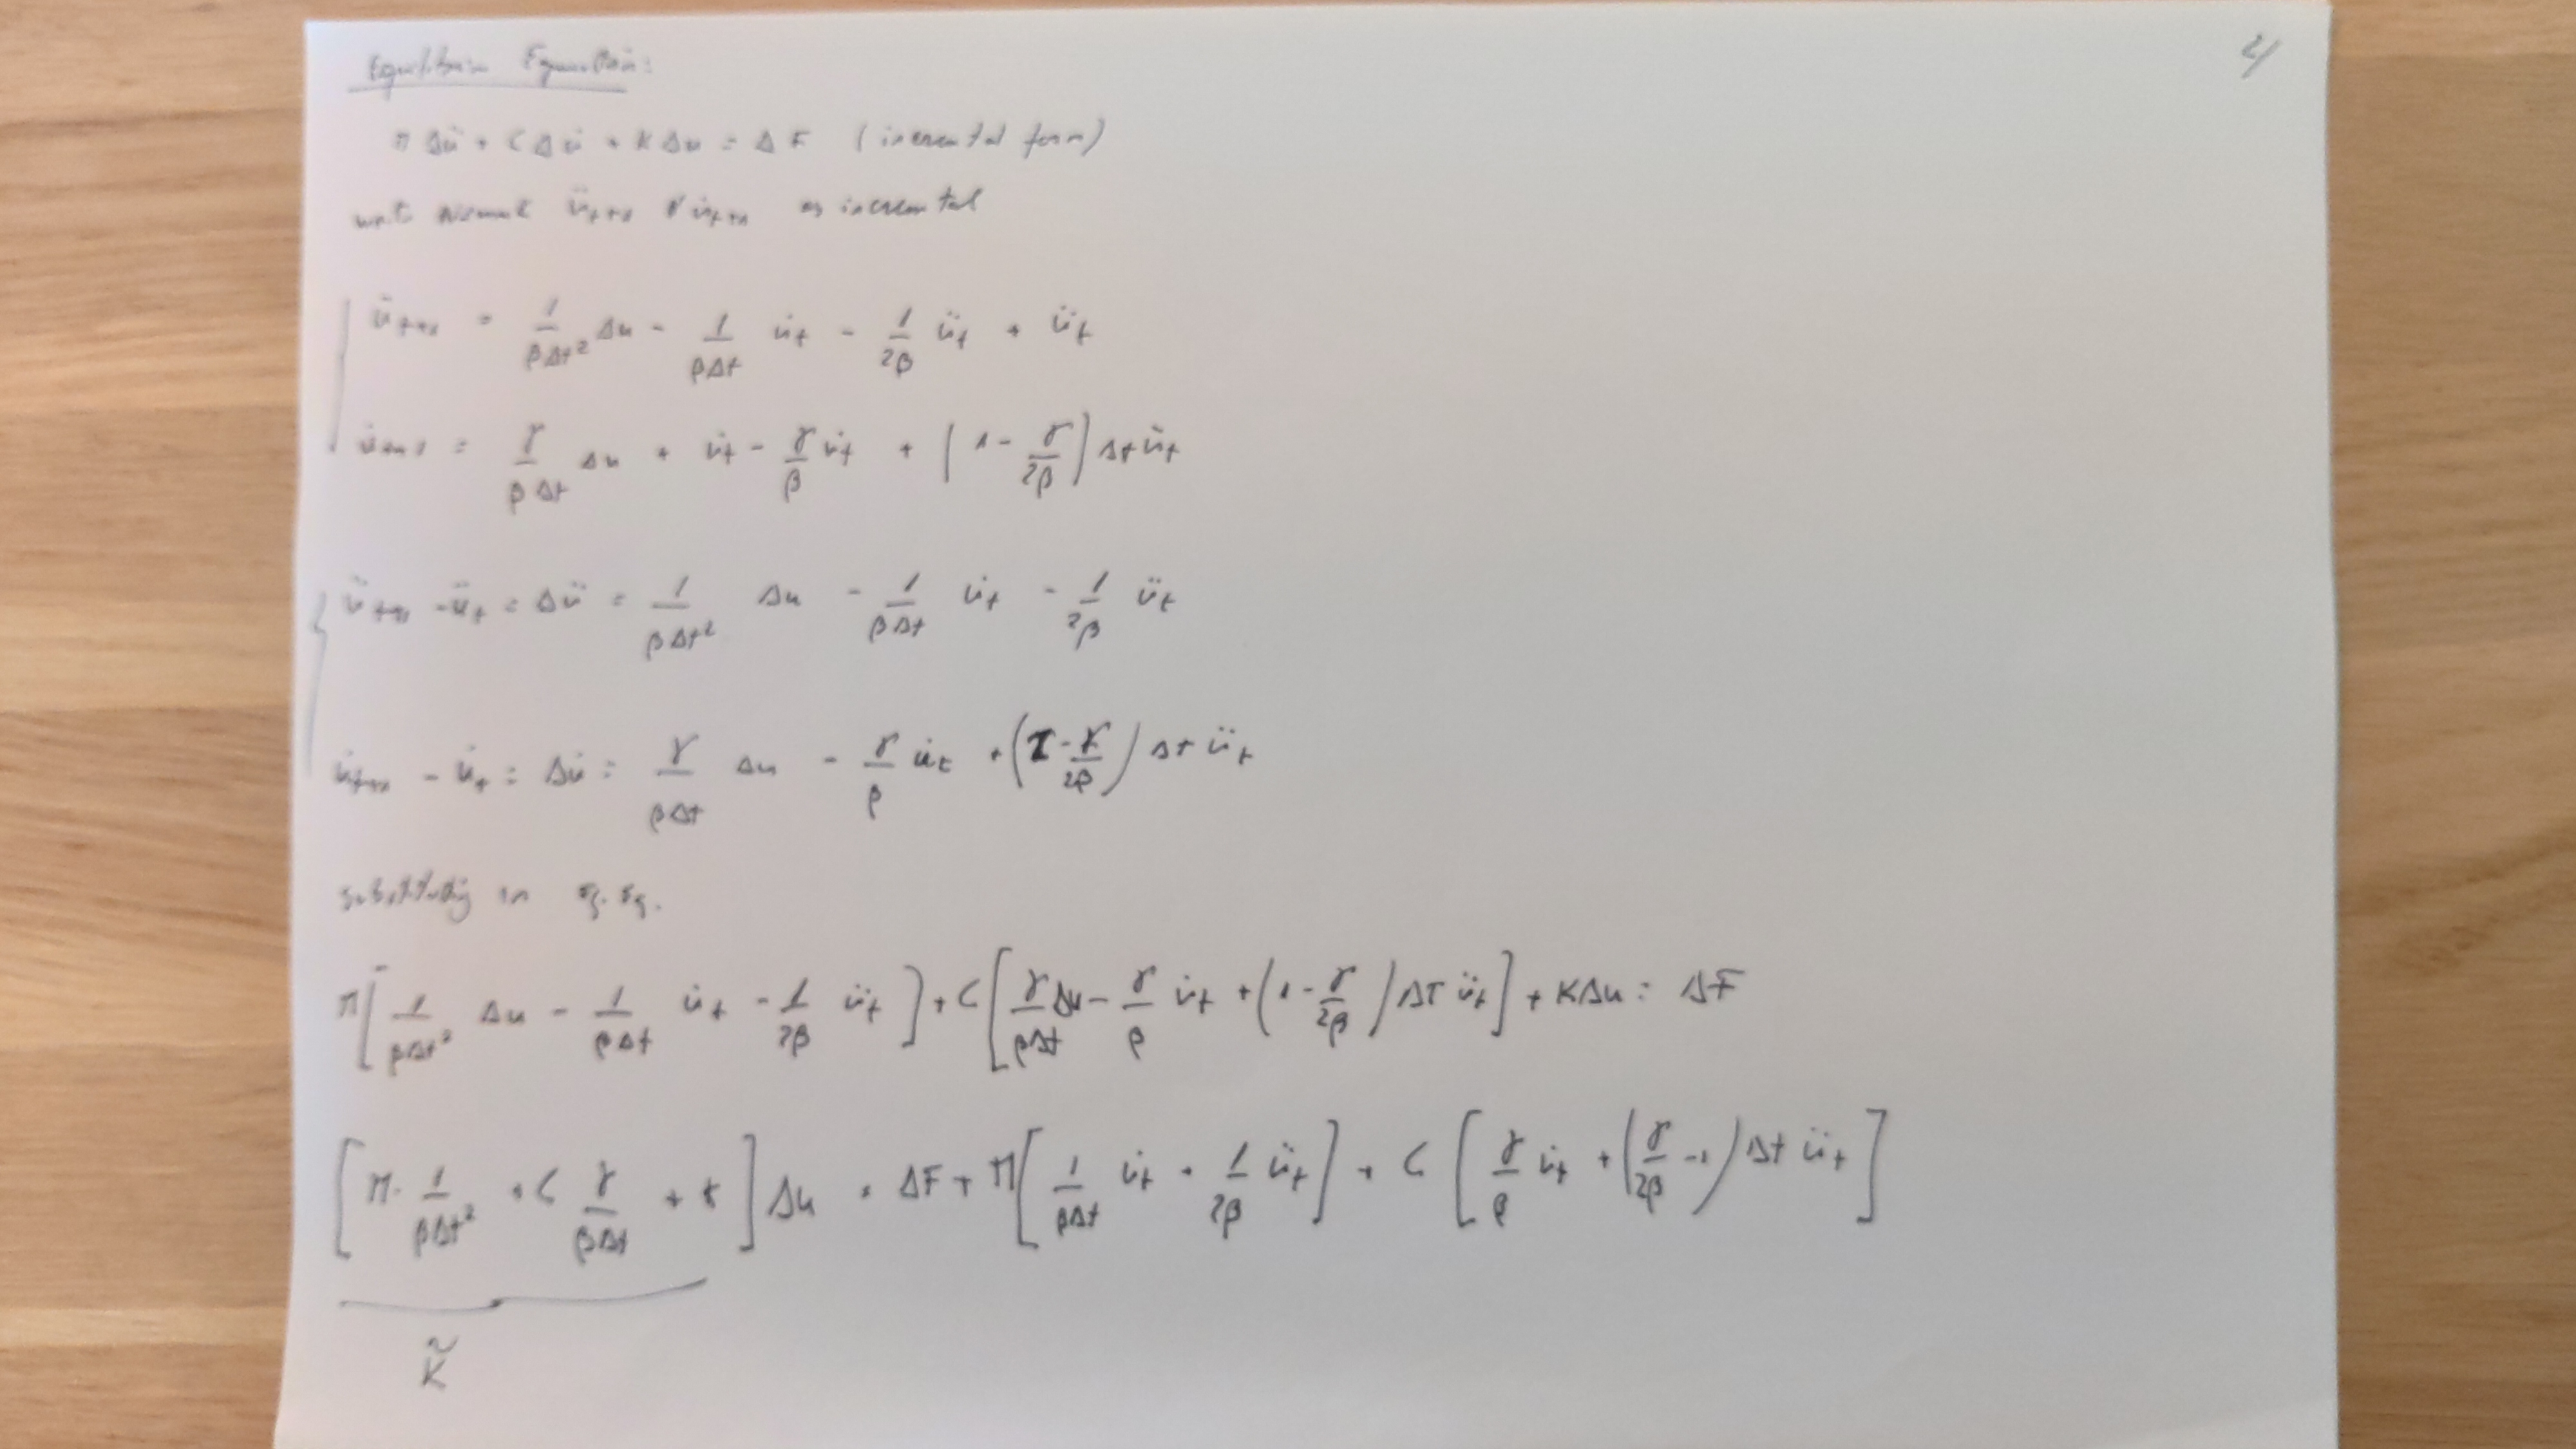 2/
Equilibrium Equation:
M Δü + C Δu̇ + K Δu = Δ F (incremental form)
ü_{t+1} u̇_{t+1} as incremental
ü_{t+1} = 1/(βΔt²) Δu - 1/(βΔt) u̇_t - 1/(2β) ü_t + ü_t
u̇_{t+1} = γ/(βΔt) Δu + u̇_t - γ/β u̇_t + (1 - γ/(2β)) Δt ü_t
ü_{t+1} - ü_t = Δü = 1/(βΔt²) Δu - 1/(βΔt) u̇_t - 1/(2β) ü_t
u̇_{t+1} - u̇_t = Δu̇ = γ/(βΔt) Δu - γ/β u̇_t + (1 - γ/(2β)) Δt ü_t
substituting in Eq. Eq.
M[1/(βΔt²) Δu - 1/(βΔt) u̇_t - 1/(2β) ü_t] + C[γ/(βΔt) Δu - γ/β u̇_t + (1 - γ/(2β)) ΔT ü_t] + KΔu = ΔF
[M · 1/(βΔt²) + C γ/(βΔt) + K] Δu = ΔF + M[1/(βΔt) u̇_t + 1/(2β) ü_t] + C [γ/β u̇_t + (γ/(2β) - 1) Δt ü_t]
K̃